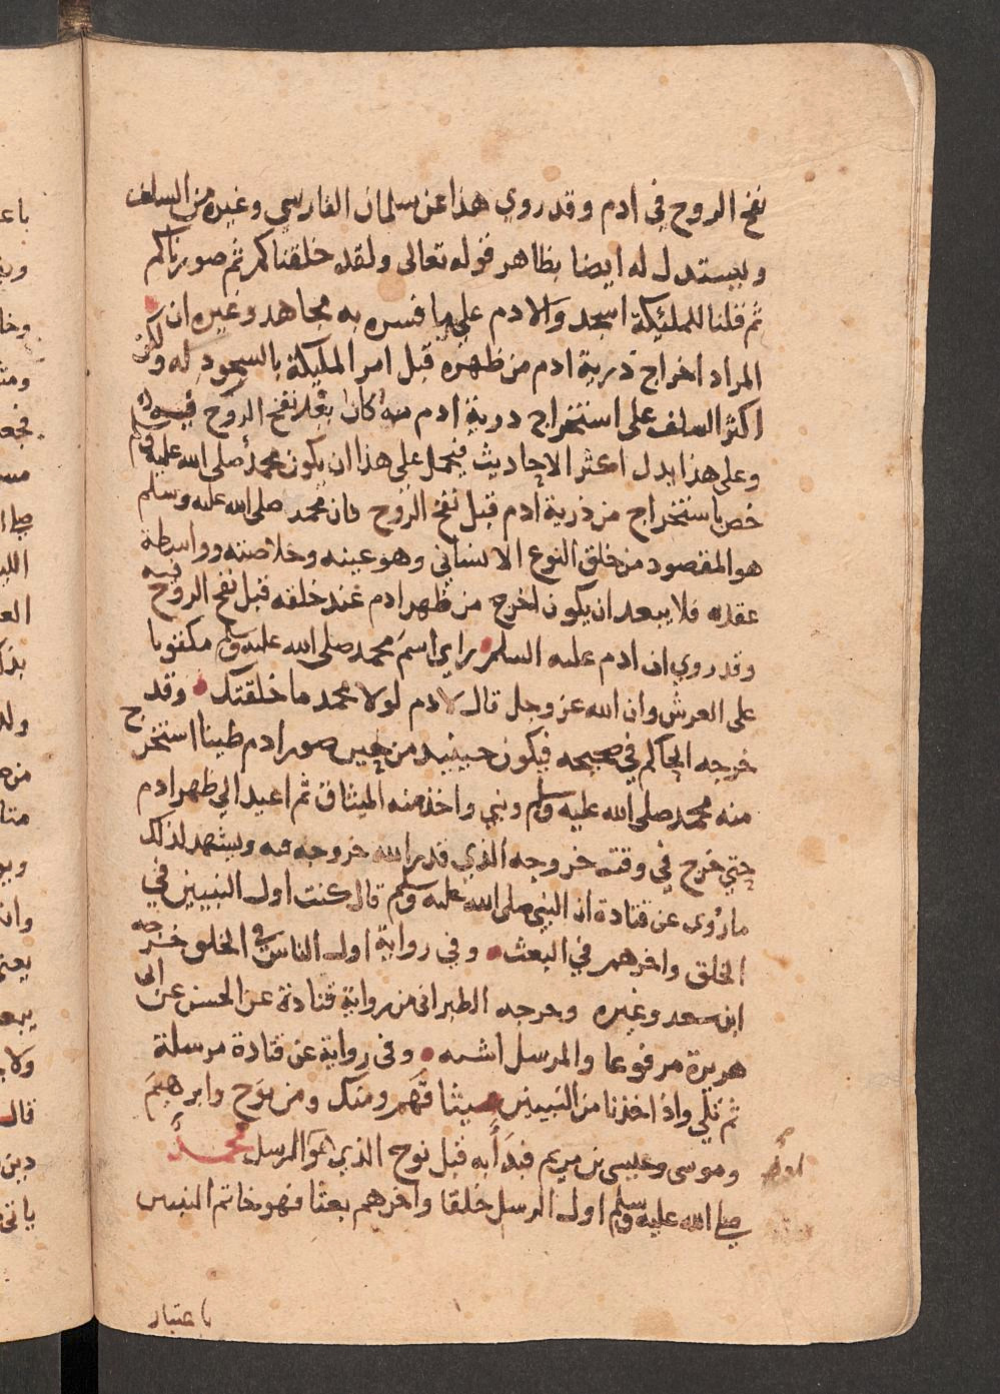 نفخ الروح في ادم وقد روي هذا عن سلمان الفارسي وغيره من السلف
ويستدل له ايضا بظاهر قوله تعالى ولقد خلقناكم ثم صورناكم
ثم قلنا للمليكة اسجدوا لادم علي ما فسره به مجاهد وغيره ان
المراد اخراج ذرية ادم من ظهره قبل امر المليكة بالسجود له ولكن
اكثر السلف على استخراج ذرية ادم منه كان بعد نفخ الروح فيه
وعلى هذا يدل اكثر الاحاديث فيحمل على هذا ان يكون محمد صلى الله عليه وسلم
خص باستخراج من ذرية ادم قبل نفخ الروح فان محمد صلى الله عليه وسلم
هو المقصود من خلق النوع الانساني وهو عينه وخلاصته وواسطة
عقده فلا يبعد ان يكون اخرج من ظهر ادم عند خلقه قبل نفخ الروح فيه
وقد روي ان ادم عليه السلم راي اسم محمد صلى الله عليه وسلم مكتوبا
على العرش وان الله عز وجل قال لادم لولا محمد ما خلقتك وقد
خرجه الحاكم في صحيحه فيكون حينيذ من حين صور ادم طينا استخرج
منه محمد صلى الله عليه وسلم ونبي واخذ منه الميثاق ثم اعيد الي ظهر ادم
حتي خرج في وقت خروجه الذي قدر الله خروجه فيه ويشهد لذلك
ما روى عن قتادة ان النبي صلى الله عليه وسلم قال كنت اول النبيين في
الخلق واخرهم في البعث وفي رواية اول الناس في الخلق خرجه
ابن سعد وغيره وخرجه الطبراني من رواية قتادة عن الحسن عن ابي
هريرة مرفوعا والمرسل اشبه وفي رواية عن قتادة مرسلة
ثم تلي واذ اخذنا من النبيين ميثاقهم ومنك ومن نوح وابرهيم
وموسى وعيسى بن مريم فبدأ به قبل نوح الذي هو اول الرسل محمد
صلى الله عليه وسلم اول الرسل خلقا واخرهم بعثا فهو خاتم النبيين
باعتبار